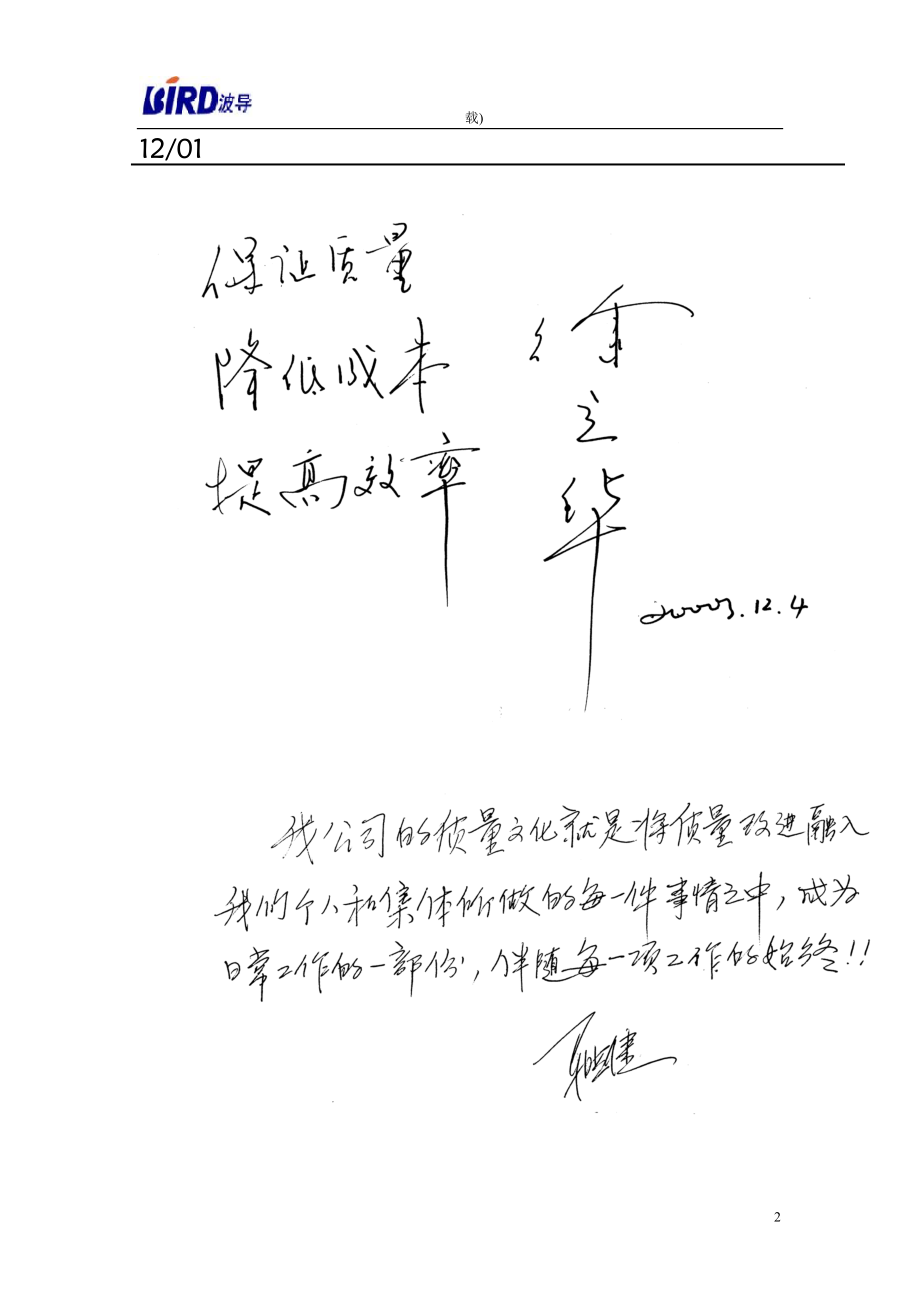 BIRD波导
载)
12/01
保证质量
降低成本
提高效率
徐立华
2003.12.4
我公司的质量文化就是将质量改进融入
我们个人和集体所做的每一件事情之中，成为
日常工作的一部份，伴随每一项工作的始终!!
2